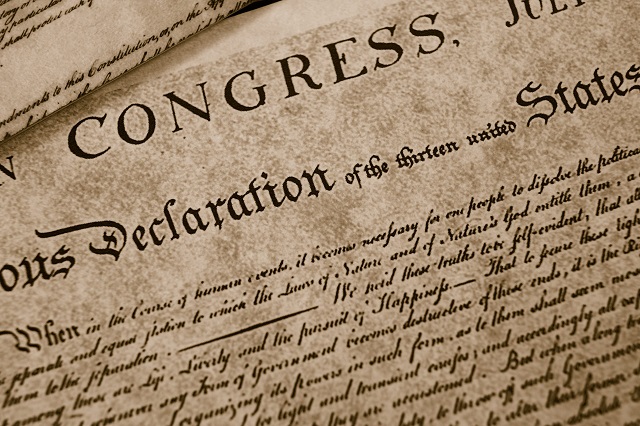 shall protect each of
to this Constitution, or, on the App
N CONGRESS, JULY
ous Declaration of the thirteen united States
When in the Course of human events, it becomes necessary for one people to dissolve the political
separate and equal station to which the Laws of Nature and of Nature's God entitle them, a
them to the separation. — We hold these truths to be self-evident, that all
among these are Life, Liberty and the pursuit of Happiness.— That to secure these righ
any Form of Government becomes destructive of these ends, it is the Ri
organizing its powers in such form, as to them shall seem mos
for light and transient causes; and accordingly all
they are accustomed. But when a long
duty, to throw off such Government
to alter their former